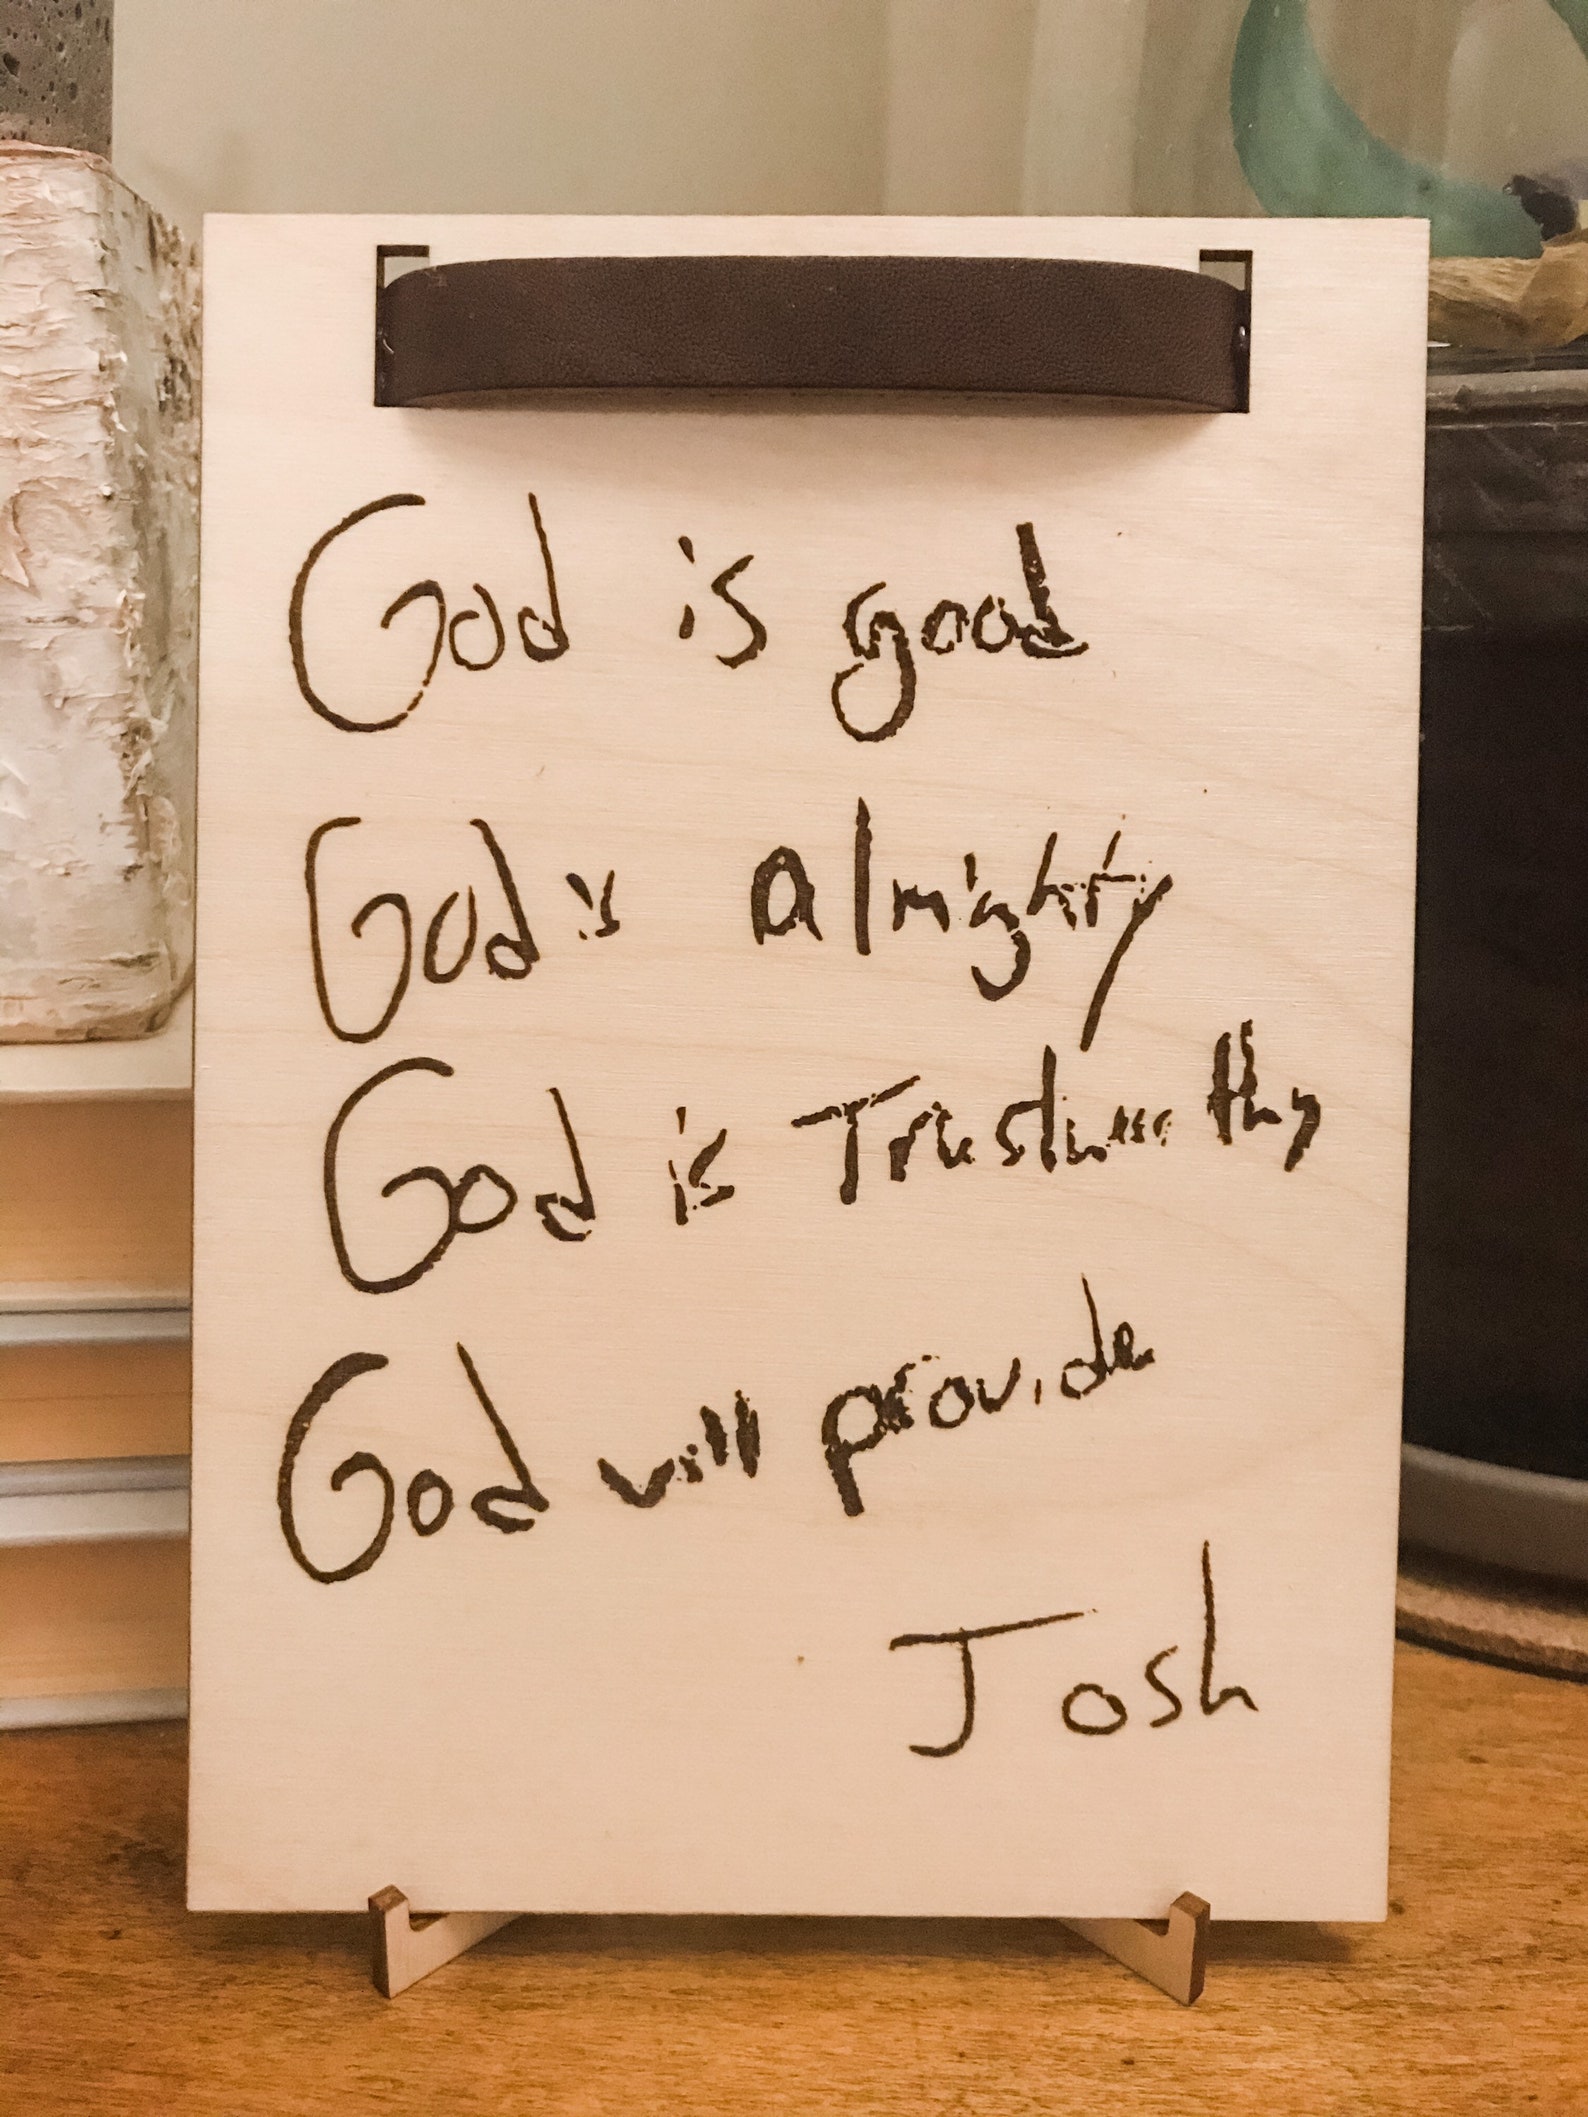 God is good
God is Almighty
God is Trustworthy
God will provide
Josh